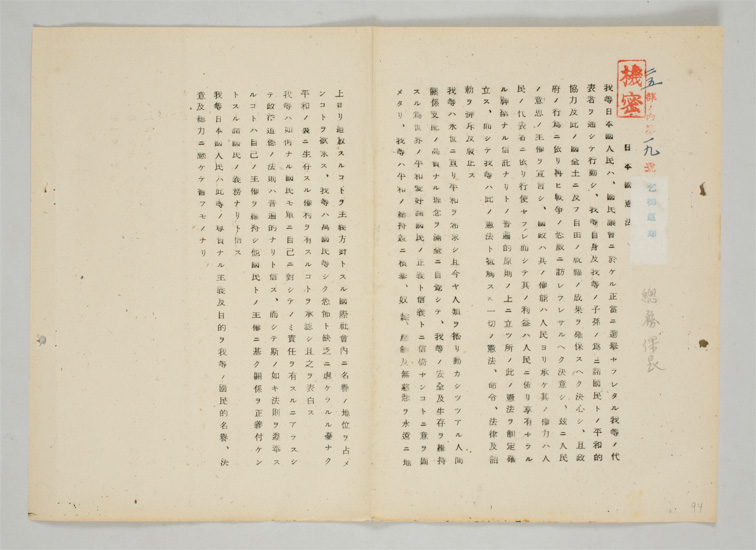 機密
日本國憲法
我等日本國人民ハ、國民議會ニ於ケル正當ニ選擧セラレタル我等ノ代
表者ヲ通シテ行動シ、我等自身及我等ノ子孫ノ爲ニ諸國民トノ平和的
協力及此ノ國全土ニ及フ自由ノ祝福ノ成果ヲ確保スヘク決心シ、且政
府ノ行爲ニ依リ再ヒ戰爭ノ恐威ニ訪レラレサルヘク決意シ、玆ニ人民
ノ意思ノ主權ヲ宣言シ、國政ハ其ノ權能ハ人民ヨリ承ケ其ノ權力ハ人
民ノ代表者ニ依リ行使セラレ而シテ其ノ利益ハ人民ニ依リ享有セラル
ル神聖ナル信託ナリトノ普遍的原則ノ上ニ立ツ所ノ此ノ憲法ヲ制定確
立ス、而シテ我等ハ此ノ憲法ト抵觸スル一切ノ憲法、命令、法律及詔
勅ヲ排斥及廢止ス
我等ハ永世ニ亘リ平和ヲ希求シ且今ヤ人類ヲ搖リ動カシツツアル人間
關係支配ノ高貴ナル理念ヲ滿全ニ自覺シテ、我等ノ安全及生存ヲ維持
スル爲世界ノ平和愛好諸國民ノ正義ト信義トニ信倚センコトニ意ヲ固
メタリ、我等ハ平和ノ維持竝ニ橫暴、奴隸、壓制及無慈悲ヲ永遠ニ地
上ヨリ追放スルコトヲ主義方針トスル國際社會內ニ名譽ノ地位ヲ占メ
ンコトヲ欲求ス、我等ハ萬國民等シク恐怖ト缺乏ニ虐ケラルル憂ナク
平和ノ裏ニ生存スル權利ヲ有スルコトヲ承認シ且之ヲ表白ス
我等ハ如何ナル國民モ單ニ自己ニ對シテノミ責任ヲ有スルニアラスシ
テ政治道德ノ法則ハ普遍的ナリト信ス、而シテ斯ノ如キ法則ヲ遵奉ス
ルコトハ自己ノ主權ヲ維持シ他國民トノ主權ニ基ク關係ヲ正義付ケン
トスル諸國民ノ義務ナリト信ス
我等日本國人民ハ此等ノ尊貴ナル主義及目的ヲ我等ノ國民的名譽、決
意及總力ニ懸ケテ誓フモノナリ
94